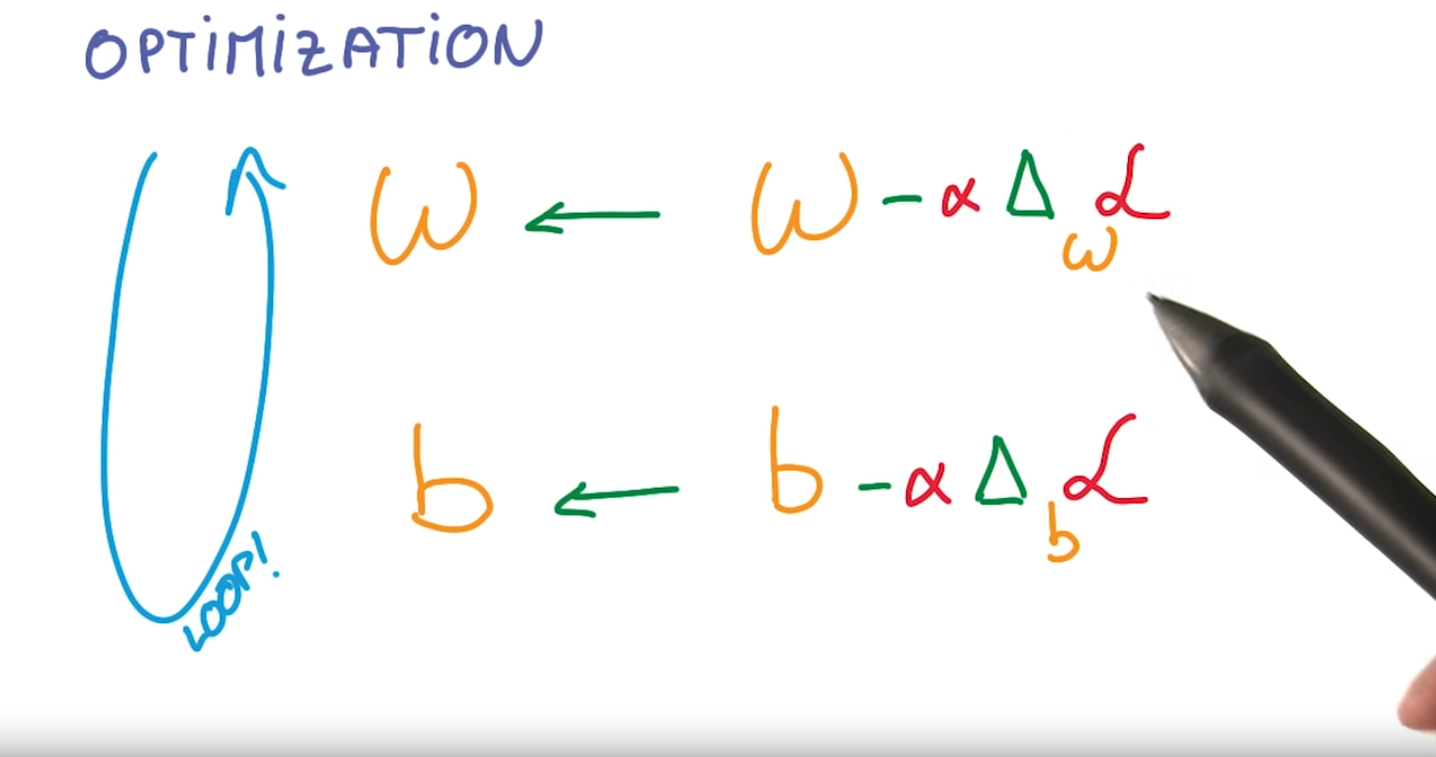 OPTIMIZATION
ω ← ω - α Δω ℒ
b ← b - α Δb ℒ
LOOP!